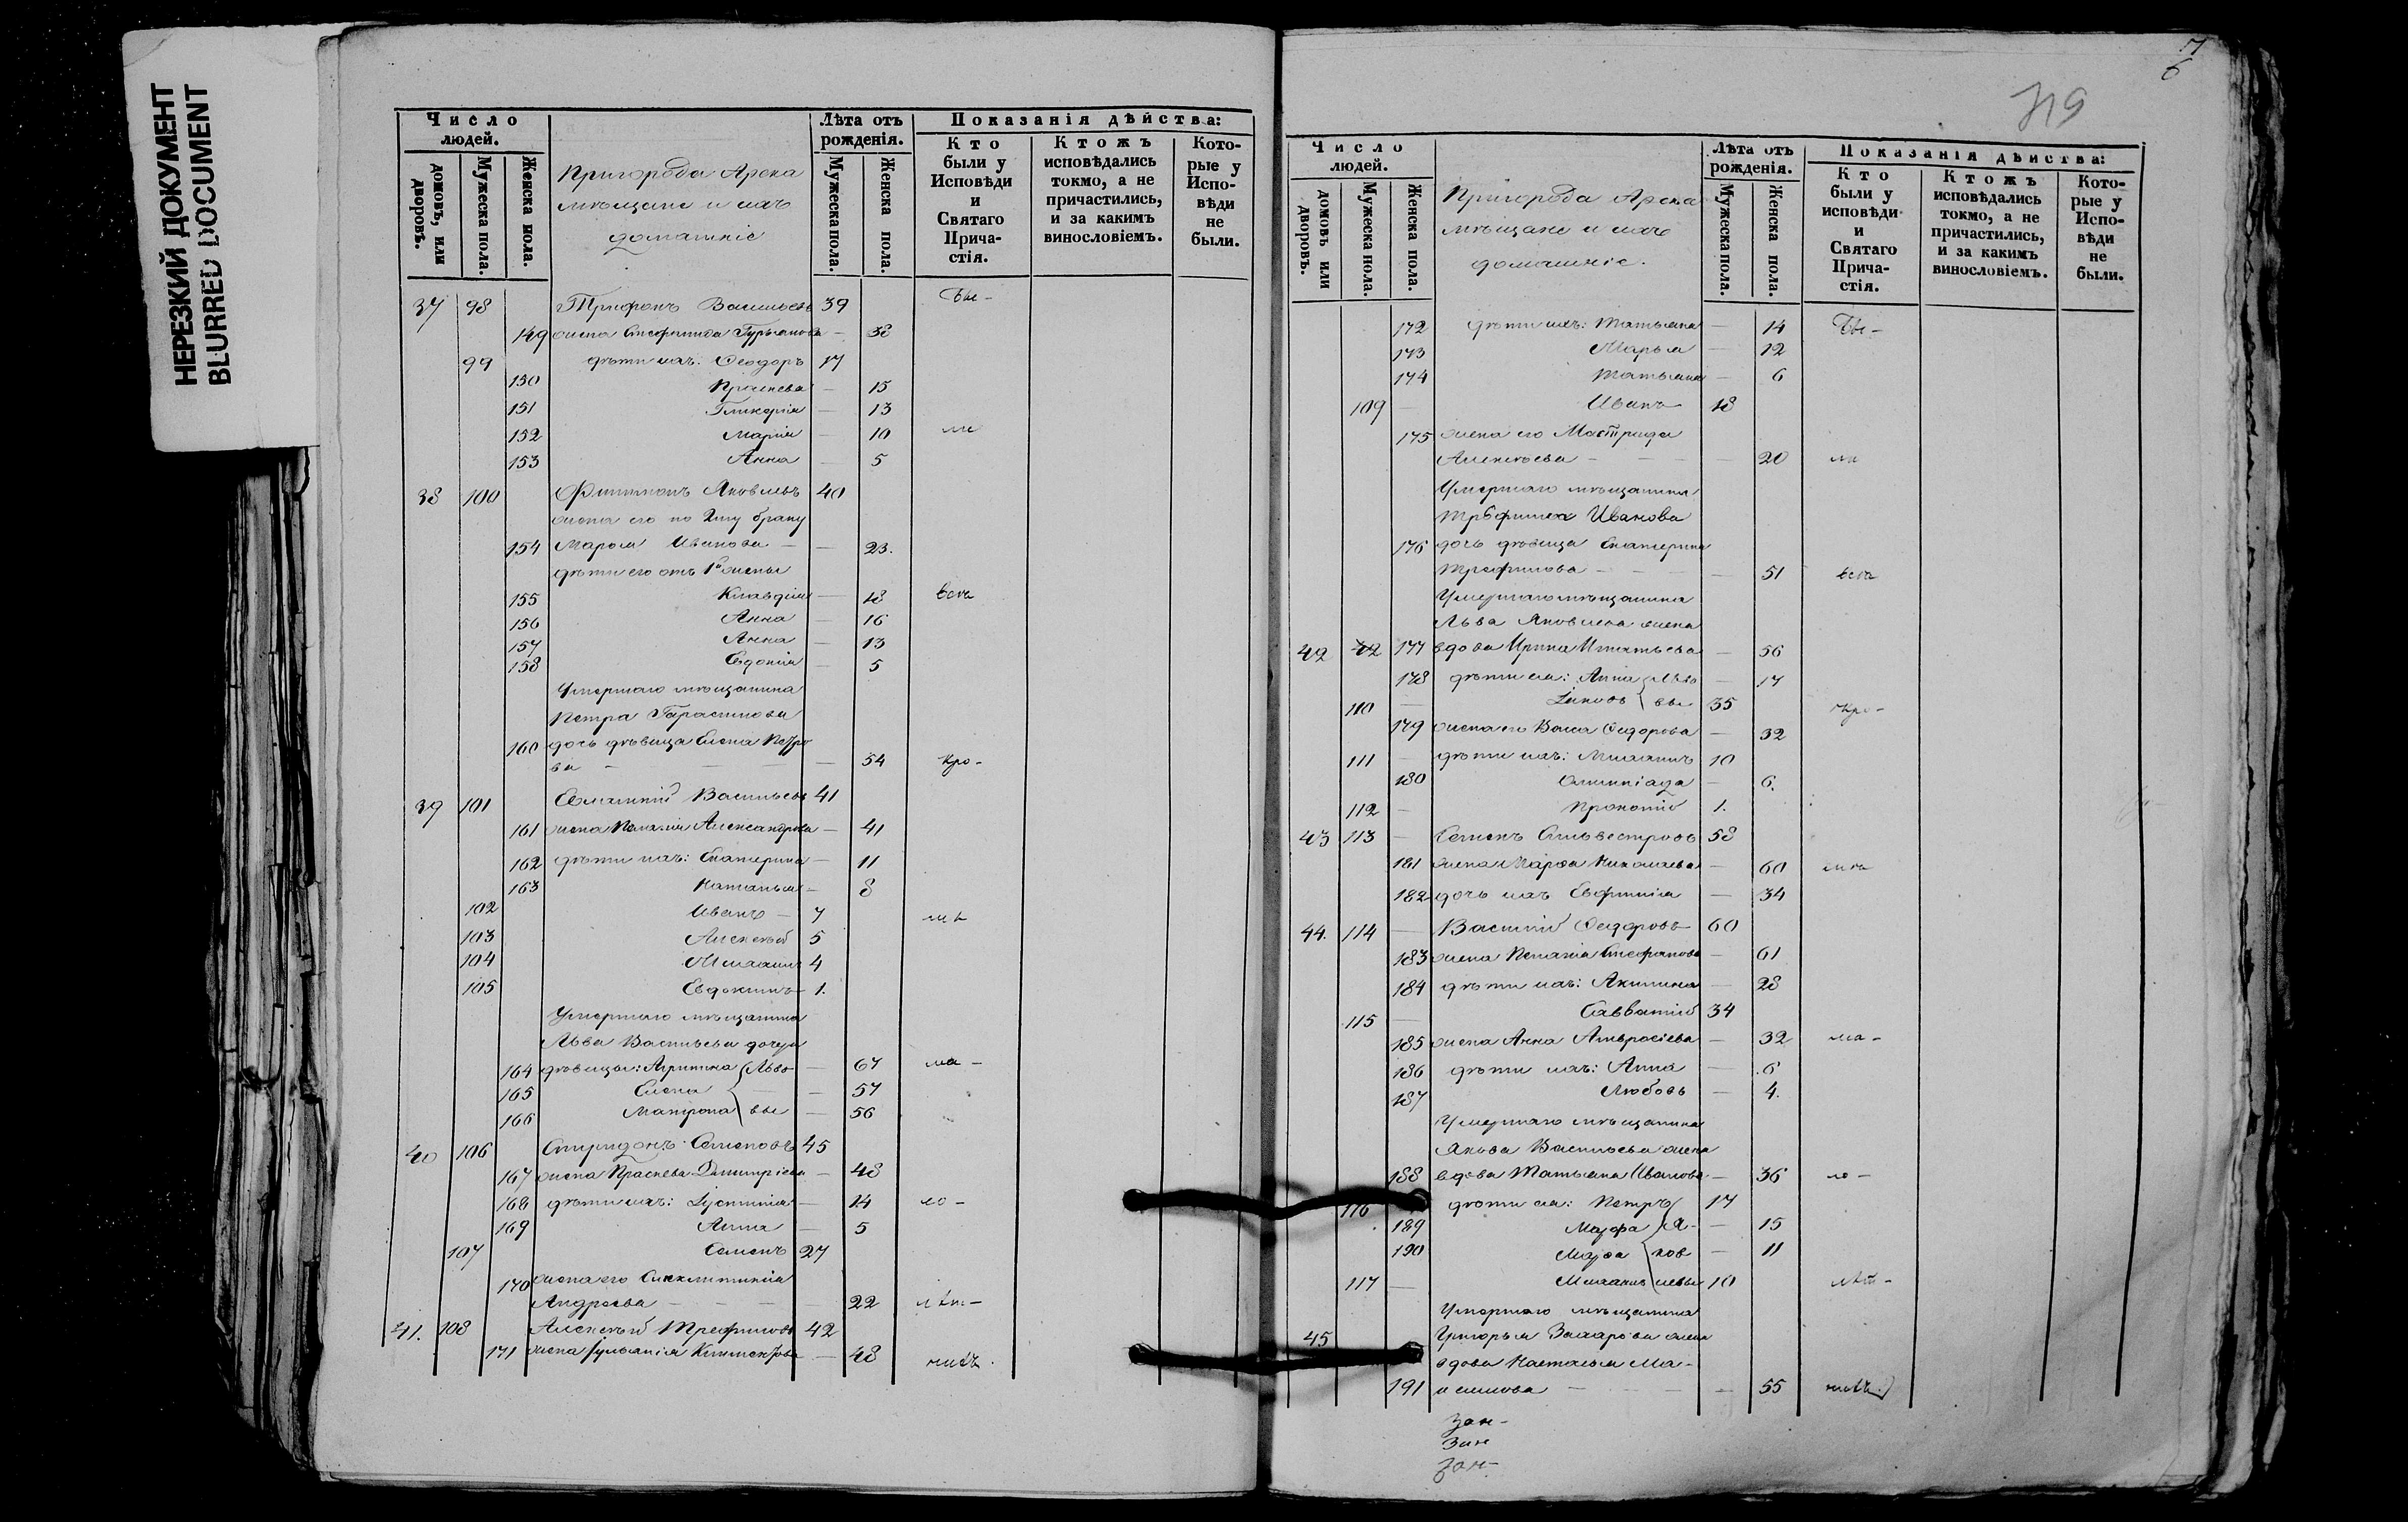 НЕРЕЗКИЙ ДОКУМЕНТ
BLURRED DOCUMENT
Число людей.
домовъ, или дворовъ.
Мужеска пола.
Женска пола.
Пригорода Арска
мѣщане и ихъ
домашніе
Лѣта отъ рожденія.
Мужеска пола.
Женска пола.
Показанія дѣйства:
Кто были у Исповѣди и Святаго Причастія.
Ктожъ исповѣдались токмо, а не причастились, и за какимъ винословіемъ.
Которые у Исповѣди не были.
37 98 Трифонъ Васильевъ 39 Бы-
149 жена Стефанида Гурьянова — 38
99 дѣти ихъ: Ѳеодоръ 17
150 Праскева — 15
151 Гликерія — 13
152 Марія — 10 ли
153 Анна — 5
38 100 Филиппъ Яковлевъ 40
жена его по 2му браку
154 Марья Иванова — 23.
дѣти его отъ 1й жены
155 Клавдія — 18 всѣ
156 Анна — 16
157 Анна — 13
158 Евдокія — 5
Умершаго мѣщанина
Петра Гарасимова
160 дочь дѣвица Елена Петро
ва — 54 кро-
39 101 Евлампій Васильевъ 41
161 жена Пелагія Александрова — 41
162 дѣти ихъ: Екатерина — 11
163 Наталья — 8
102 Иванъ — 7 мѣ
103 Алексѣй 5
104 Михаилъ 4
105 Евдокимъ 1.
Умершаго мѣщанина
Льва Васильева дочери
164 дѣвицы: Агрипина Льво — 67 ма-
165 Елена — 57
166 Матрона вы — 56
40 106 Спиридонъ Семеновъ 45
167 жена Праскева Димитріева — 48
168 дѣти ихъ: Іустинія — 14 ло-
169 Анна — 5
107 Семенъ 27
170 жена его Синклитикія
Андреева — 22 лѣт-
41. 108 Алексѣй Трефиловъ 42
171 жена Іуліанія Климентова — 48 нихъ.
7
6
719
Число людей.
домовъ или дворовъ.
Мужеска пола.
Женска пола.
Пригорода Арска
мѣщане и ихъ
домашніе.
Лѣта отъ рожденія.
Мужеска пола.
Женска пола.
Показанія дѣйства:
Кто были у исповѣди и Святаго Причастія.
Ктожъ исповѣдались токмо, а не причастились, и за какимъ винословіемъ.
Которые у Исповѣди не были.
172 дѣти ихъ: Татьяна — 14 Бы-
173 Марья — 12
174 Татьяна — 6
109 — Иванъ 18
175 жена его Мастридія
Алексѣева — 20 ли
Умершаго мѣщанина
Трефила Иванова
176 дочь дѣвица Екатерина
Трефилова — 51 всѣ
Умершаго мѣщанина
Льва Яковлева жена
42 42 177 вдова Ирина Игнатьева — 56
178 дѣти ея: Анна Льво — 17
110 — Іаковъ вы 35 кро-
179 жена его Васса Сидорова — 32
111 — дѣти ихъ: Михаилъ 10
180 Олимпіада — 6.
112 — Прокопій 1.
43 113 — Семенъ Сильвестровъ 58
181 жена Марѳа Николаева — 60 мѣ
182 дочь ихъ Евфимія — 34
44. 114 — Василій Сидоровъ 60
183 жена Пелагія Стефанова — 61
184 дѣти ихъ: Акилина — 28
115 — Савватій 34
185 жена Анна Амвросіева — 32 ма-
186 дѣти ихъ: Анна — 6
187 Любовь — 4.
Умершаго мѣщанина
Якова Васильева жена
188 вдова Татьяна Иванова — 36 ло-
116 дѣти ея: Петръ 17
189 Марфа Я- — 15
190 Марѳа ков — 11
117 — Михаилъ левы 10 лѣт-
Умершаго мѣщанина
45 Григорья Захарова жена
вдова Наталья Ма-
191 ксимова — 55 нихъ.
Зан-
Зан
Зан-